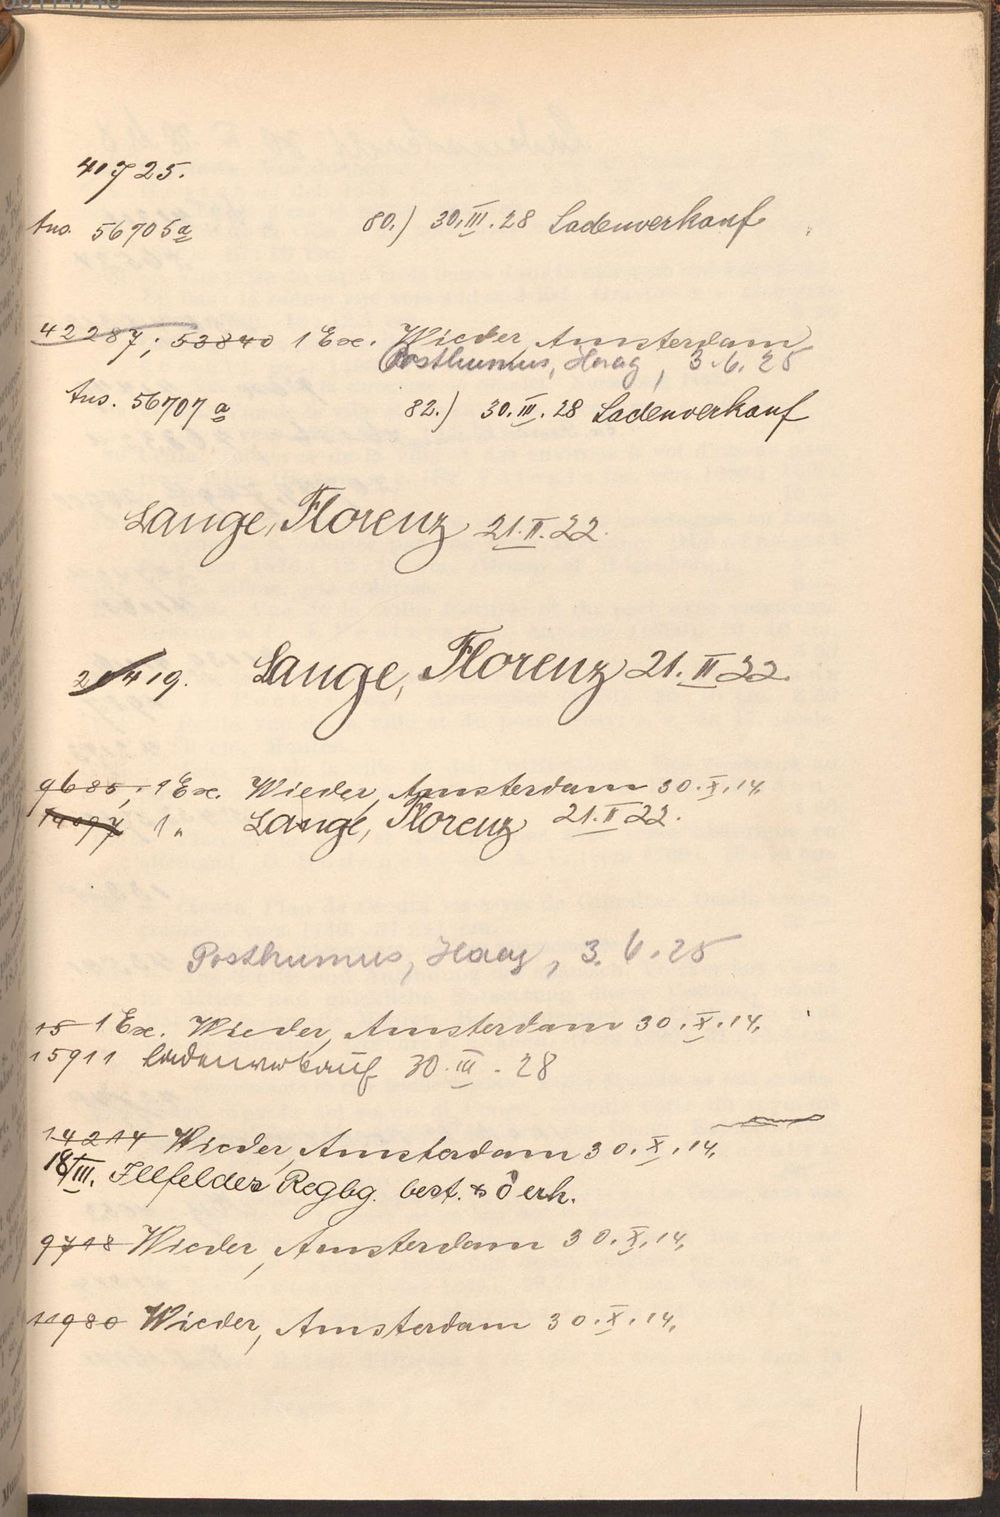 41725.
Ans. 56705a 80.) 30.III.28 Ladenverkauf
42287; 53840 1 Ex. Wieder, Amsterdam
Posthumus, Haag, 3.6.25
Ans. 56707a 82.) 30.III.28 Ladenverkauf
Lange, Florenz 21.II.22.
Lange, Florenz 21.II.22.
9685; 1 Ex. Wieder, Amsterdam 30.X.14.
1 " Lange, Florenz 21.II.22.
Posthumus, Haag, 3.6.25
15 1 Ex. Wieder, Amsterdam 30.X.14.
15911 Ladenverkauf 30.III.28
14214 Wieder, Amsterdam 30.X.14.
18/III. Illfelder Regbg. best. erh.
9718 Wieder, Amsterdam 30.X.14.
11980 Wieder, Amsterdam 30.X.14.